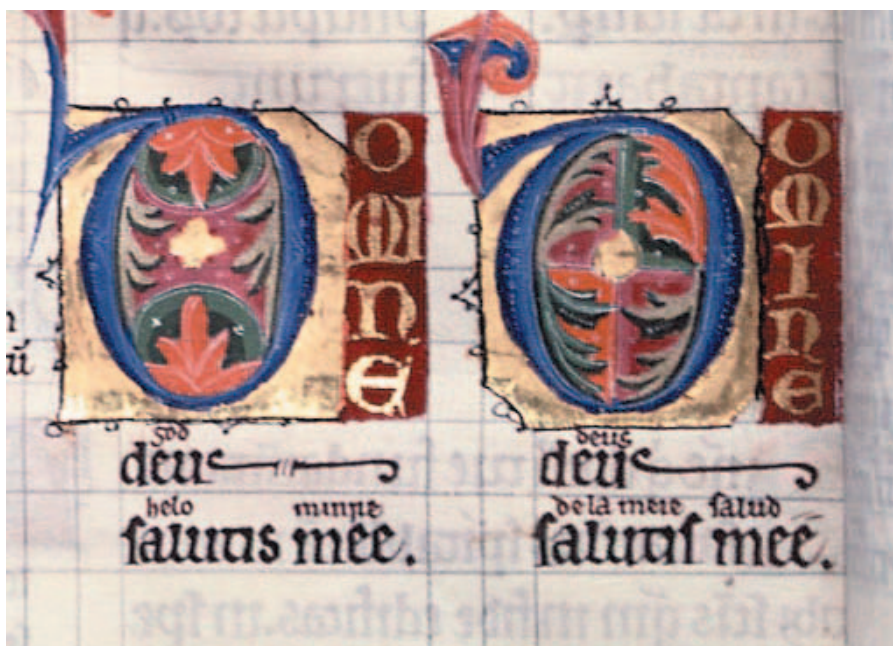 DOMNE
god
deus
helo minre
salutis mee.
DOMINE
deus
deus
de la meie salud
salutis mee.